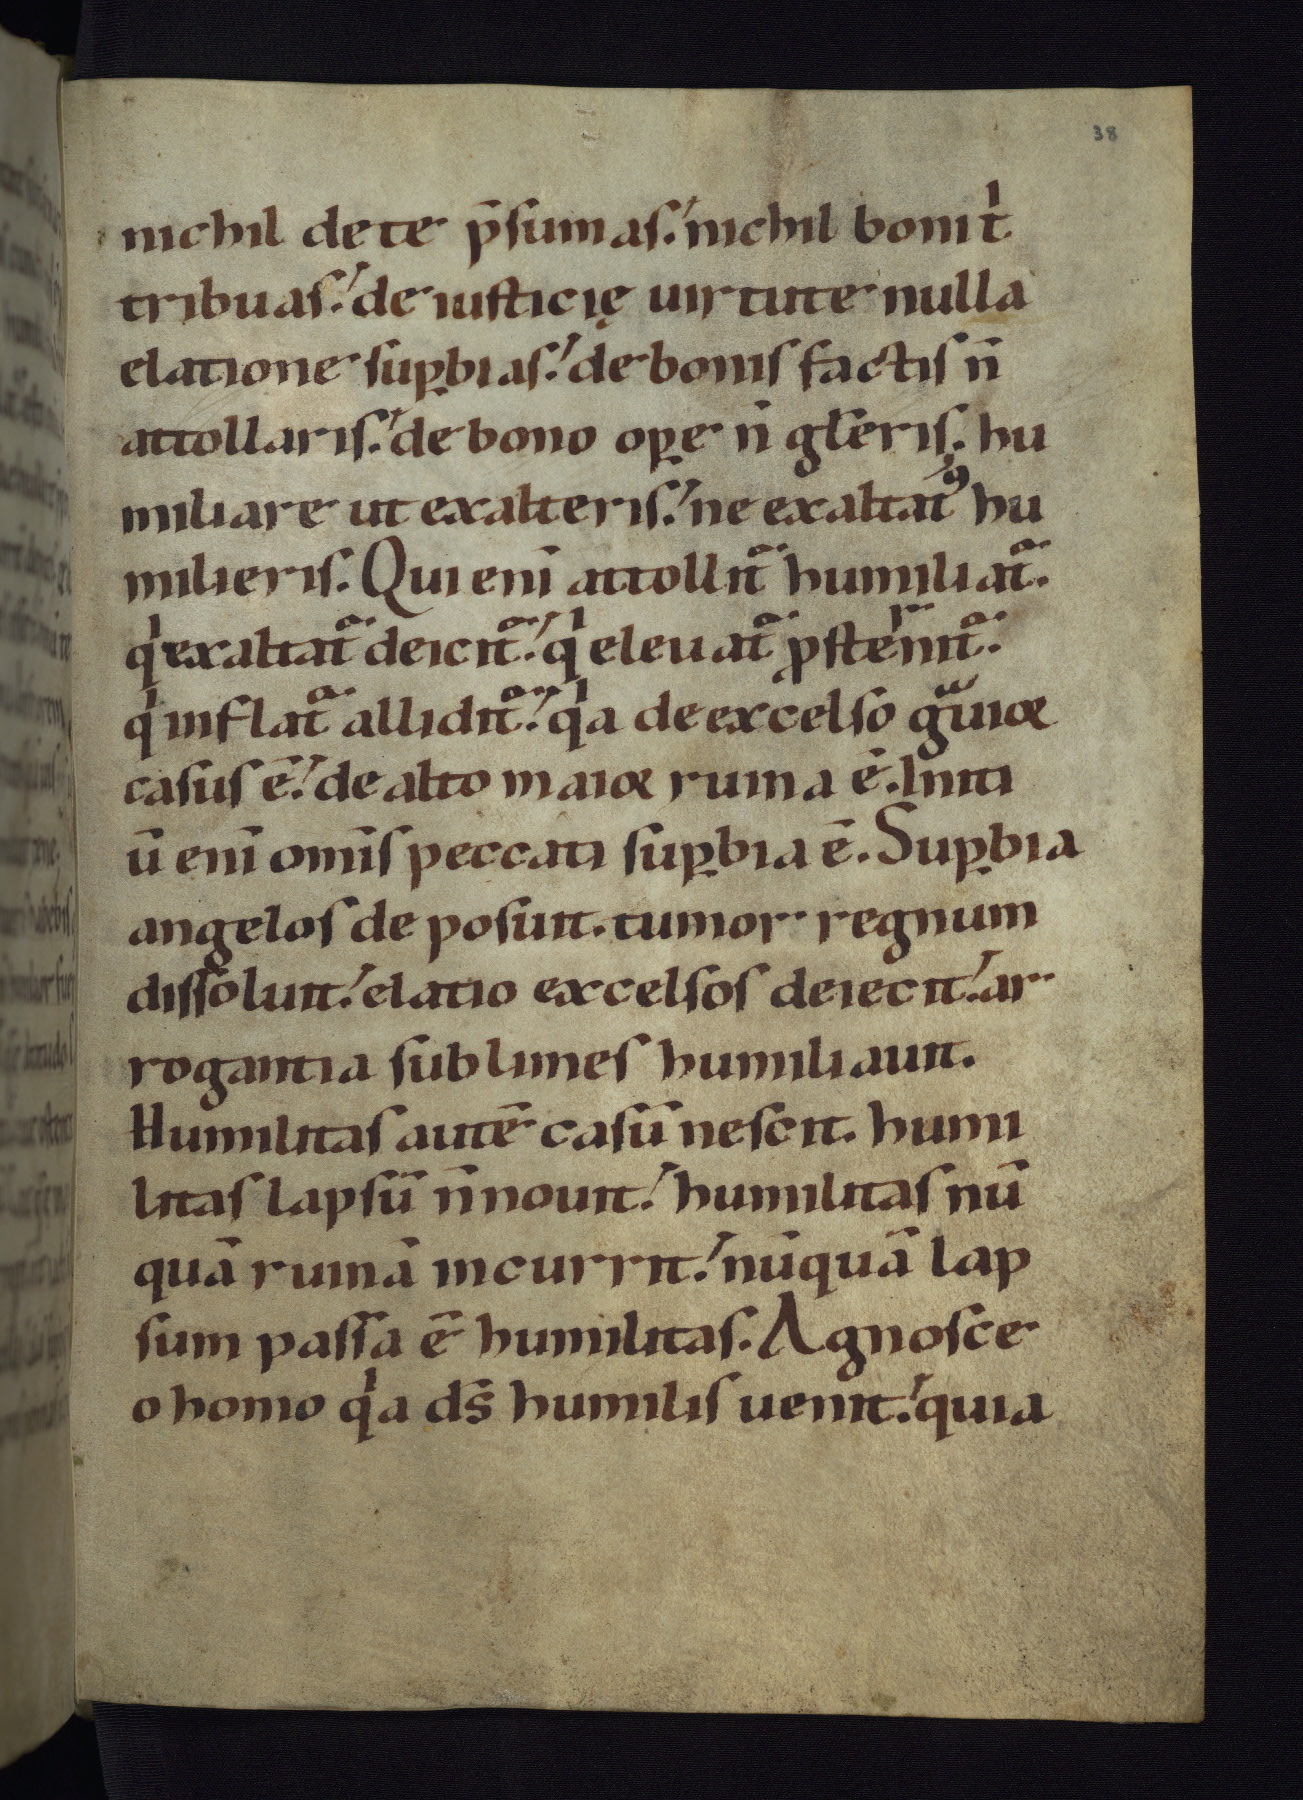 38
nichil de te p̄sumas. nichil boni tͥ
tribuas. de iusticię uirtute nulla
elatione suꝑbias. de bonis factis n̄
attollaris. de bono oꝑe n̄ gl̄eris. hu
miliare ut exalteris. ne exaltatꝰ hu
milieris. Qui eni̅ attollit᷑ humiliat᷑.
qͥ exaltat᷑ deicit᷑. qͥ eleuat᷑ ꝓsternit᷑.
qͥ inflat᷑ allidit᷑. qͥa de excelso gᷓuior
casus ē. de alto maior ruina ē. Initi
ū eni̅ omīs peccati suꝑbia ē. Suꝑbia
angelos deposuit. tumor regnum
dissoluit. elatio excelsos deiecit. ar
rogantia sublimes humiliauit.
Humilitas autē casū nescit. humi
litas lapsū n̄ nouit. humilitas nū
quā ruinā incurrit. nūquā lap
sum passa ē humilitas. Agnosce
o homo qͥa ds̄ humilis uenit. quia